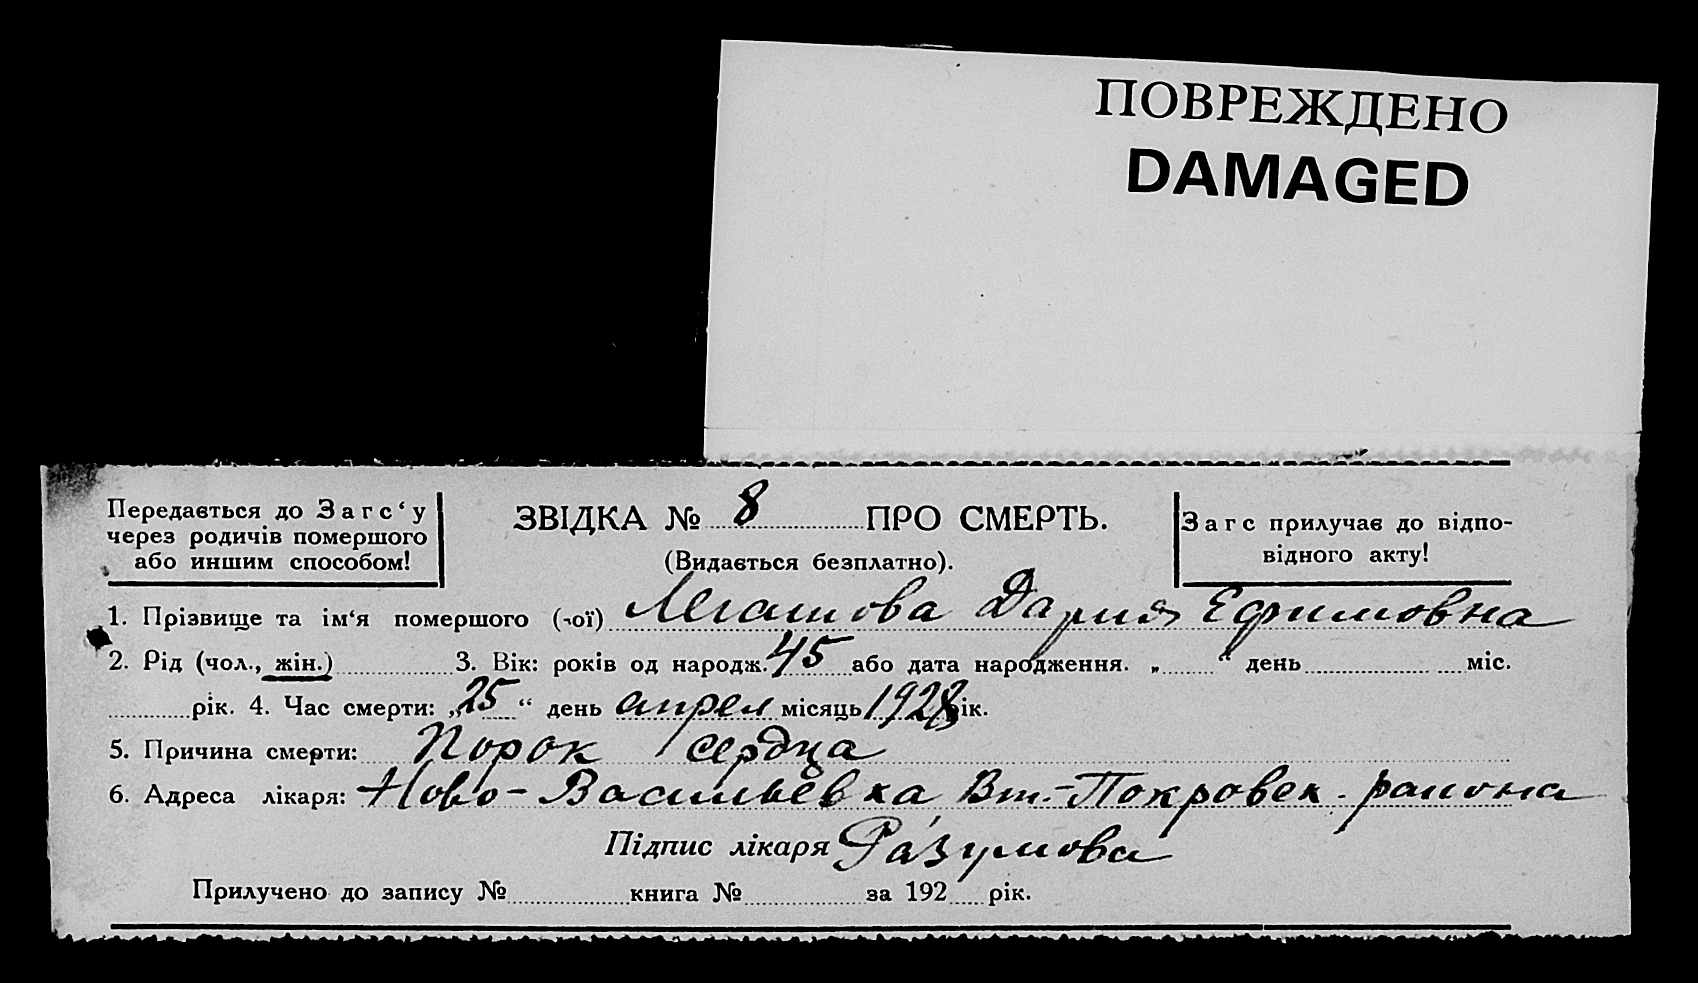 ПОВРЕЖДЕНО
DAMAGED
Передається до Загс‘у
через родичів помершого
або иншим способом!
ЗВІДКА № 8 ПРО СМЕРТЬ.
(Видається безплатно).
Загс прилучає до відпо-
відного акту!
1. Прізвище та ім‘я помершого (-ої) Дария Ефимовна
2. Рід (чол., жін.) 3. Вік: років од народж. 45 або дата народження. „ “ день міс.
рік. 4. Час смерти: „25“ день апрел місяць 1928 рік.
5. Причина смерти: Порок сердца
6. Адреса лікаря: Ново-Васильевка Вт.-Покровск. района
Підпис лікаря Разумова
Прилучено до запису № книга № за 192 рік.